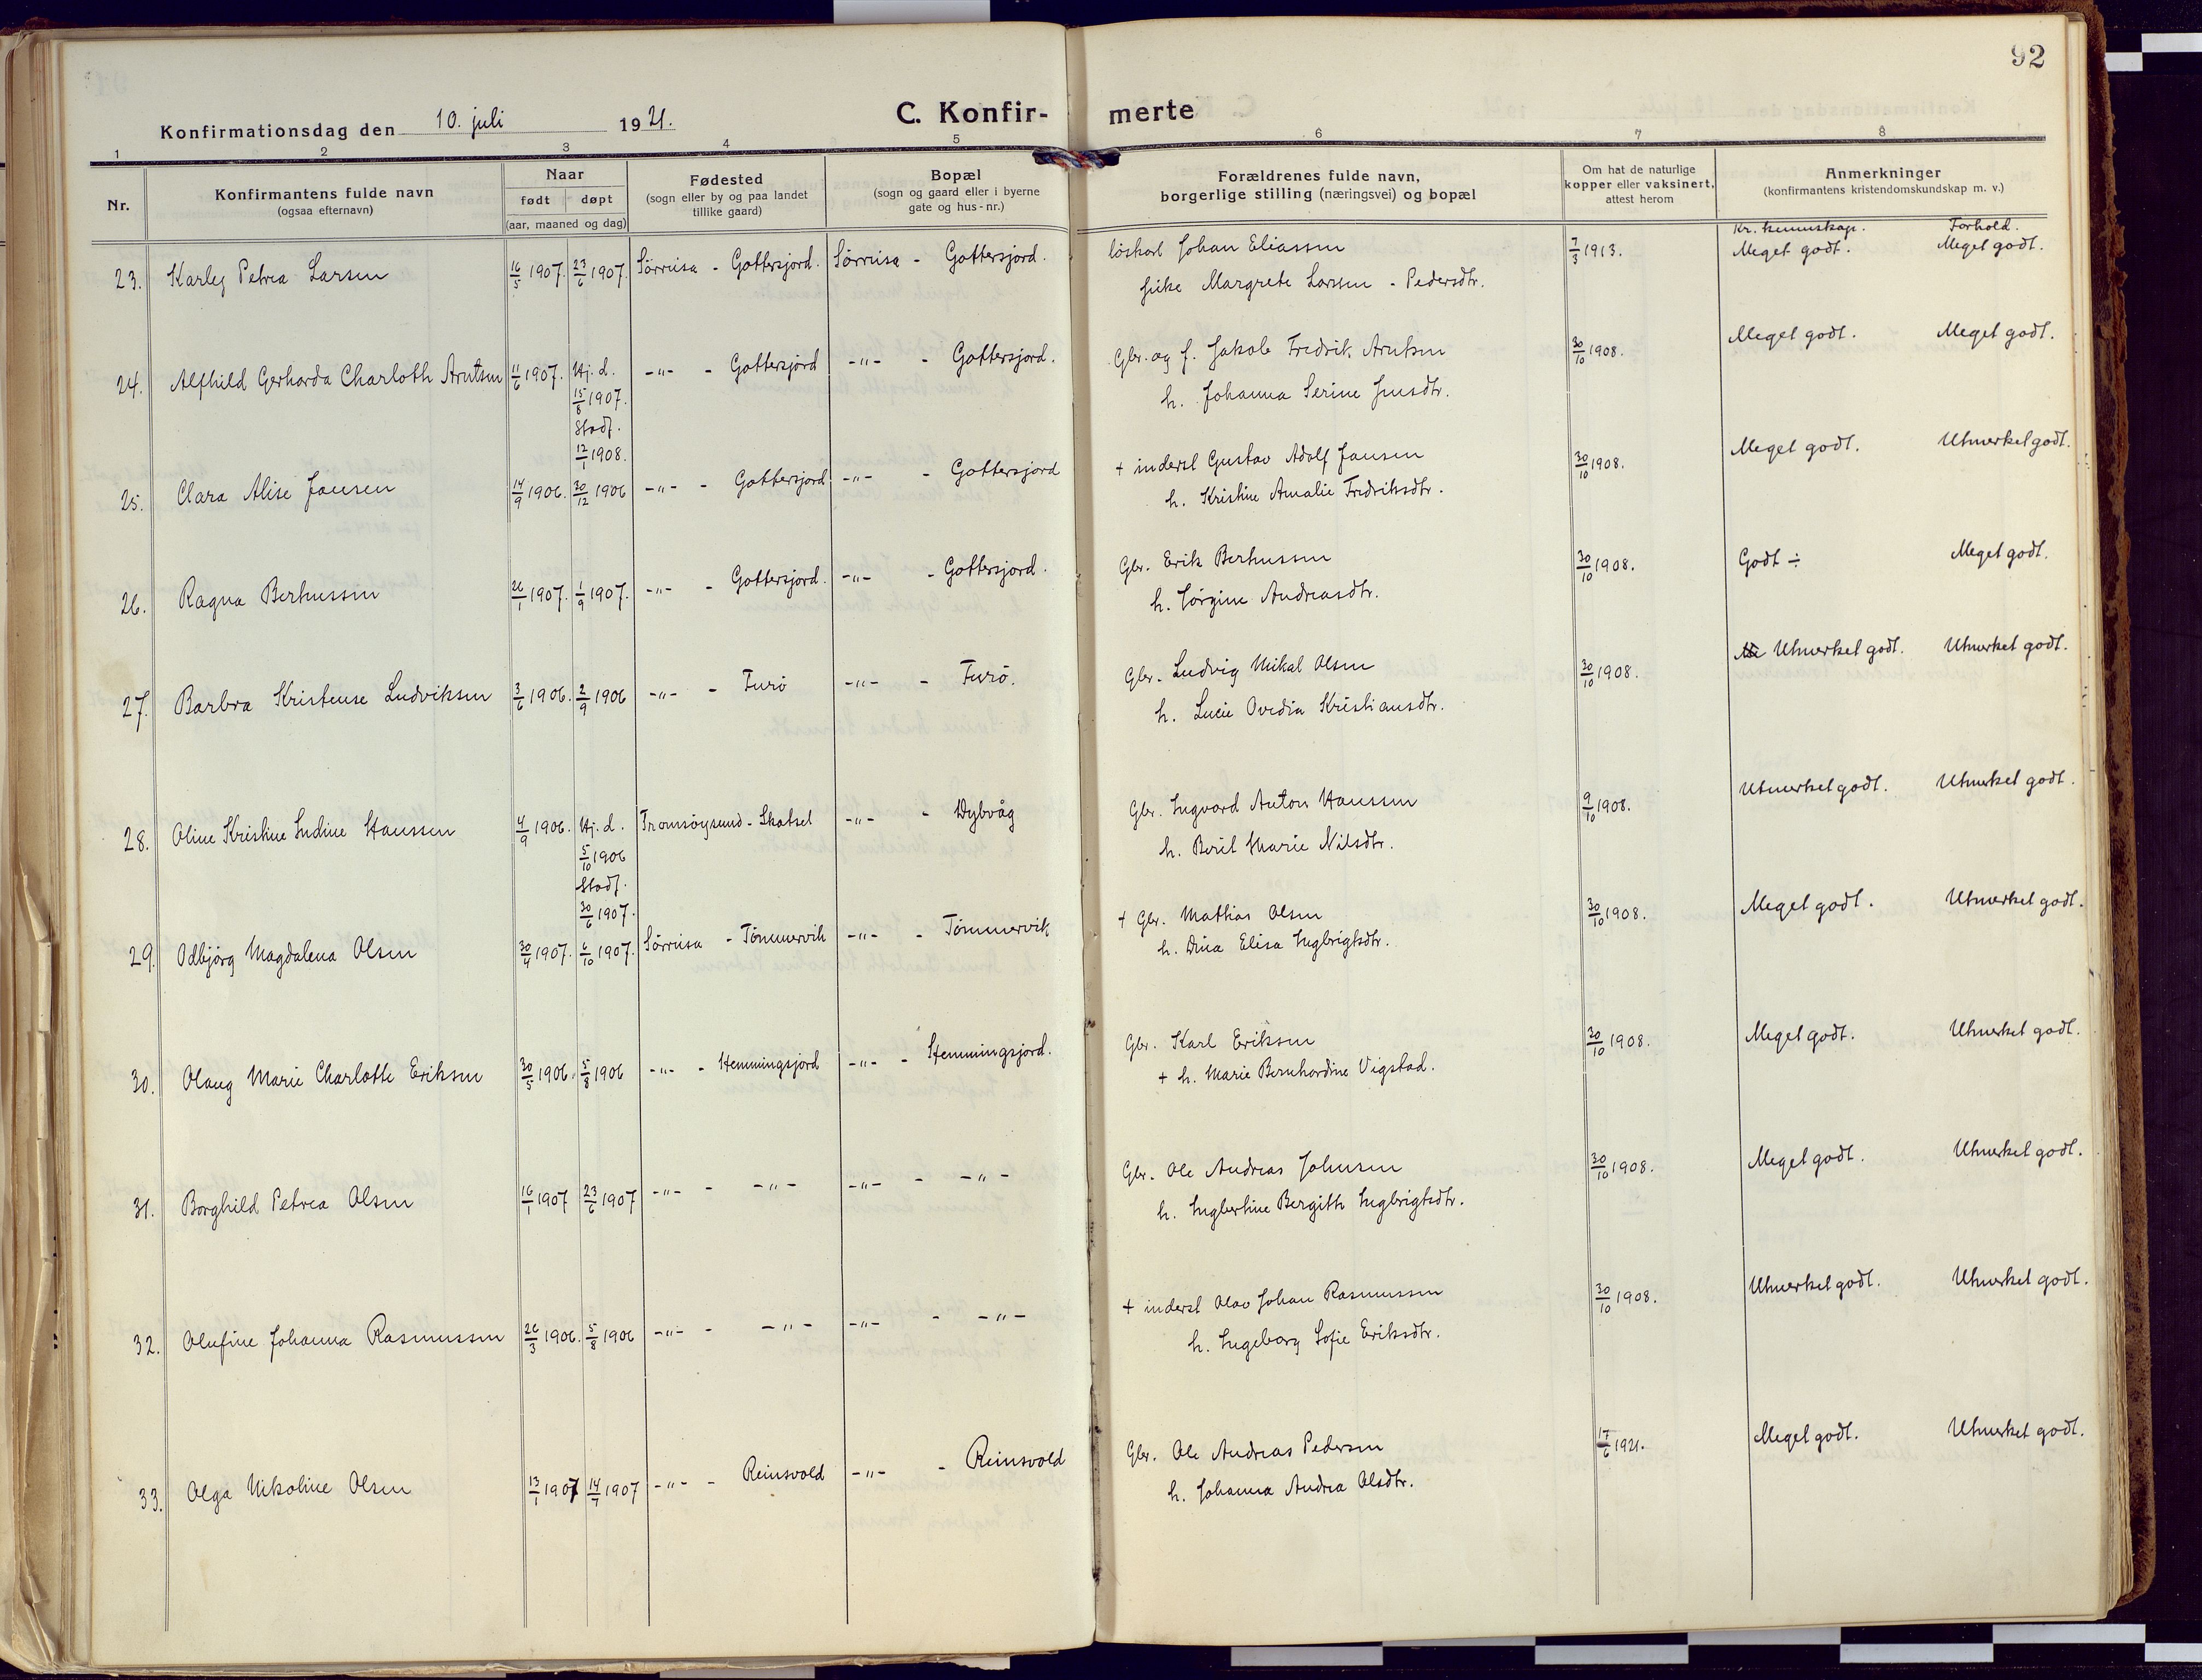 92
Konfirmationsdag den 10. juli 1921.
C. Konfirmerte
1 2 3 4 5 6 7 8
Nr.
Konfirmantens fulde navn
(ogsaa efternavn)
Naar
født døpt
(aar, maaned og dag)
Fødested
(sogn eller by og paa landet
tillike gaard)
Bopæl
(sogn og gaard eller i byerne
gate og hus-nr.)
Forældrenes fulde navn,
borgerlige stilling (næringsvei) og bopæl
Om hat de naturlige
kopper eller vaksinert,
attest herom
Anmerkninger
(konfirmantens kristendomskundskap m. v.)
Kr. kunnskap. Forhold.
23. Karley Petrea Larsen 16/5 1907. 23/6 1907. Sørreisa - Gottersjord. Sørreisa - Gottersjord. løskarl Johan Eliassen 7/3 1913. Meget godt. Meget godt.
pike Margrete Larsen - Pedersdtr.
24. Alfhild Gerharda Charloth Arntsen 11/6 1907. Hj. d. -"- - Gottersjord -"- - Gottersjord. Gbr. og f. Jakob Fredrik Arntsen 30/10 1908. Meget godt. Meget godt.
15/8 1907. h. Johanna Serine Jensdtr.
Stadf.
12/1 1908.
25. Clara Alise Jansen 14/9 1906. 30/12 1906 -"- - Gottersjord -"- - Gottersjord + inderst Gustav Adolf Jansen 30/10 1908. Meget godt. Utmerket godt.
h. Kristine Amalie Fredriksdtr.
26. Ragna Berhussen 26/1 1907. 1/9 1907. -"- - Gottersjord. -"- - Gottersjord. Gbr. Erik Berhussen 30/10 1908. Godt ÷ Meget godt.
h. Jørgine Andreasdtr.
27. Barbra Kristense Ludviksen 3/6 1906. 2/9 1906 -"- - Furø -"- - Furø. Gbr. Ludvig Mikal Olsen 30/10 1908. Utmerket godt. Utmerket godt.
h. Lucie Ovedia Kristiansdtr.
28. Oline Kristine Indine Hanssen 4/9 1906. Hj. d. Tromsøysund - Skatsel -"- - Dybvåg Gbr. Ingvard Anton Hanssen 9/10 1908. Utmerket godt. Utmerket godt.
5/10 1906 h. Beril Marie Nilsdtr.
Stadf.
30/6 1907.
29. Odbjørg Magdalena Olsen 30/4 1907. 6/10 1907. Sørreisa - Tømmervik -"- - Tømmervik + Gbr. Mathias Olsen 30/10 1908. Meget godt. Utmerket godt.
h. Dina Elisa Ingbrigtsdtr.
30. Olaug Marie Charlotte Eriksen 30/5 1906. 5/8 1906 -"- - Hemmingsjord -"- - Hemmingsjord. Gbr. Karl Eriksen 30/10 1908. Meget godt. Utmerket godt.
+ h. Marie Bernhardine Vigstad.
31. Borghild Petrea Olsen 16/1 1907 23/6 1907 -"- - -"- -"- - -"- Gbr. Ole Andreas Johnsen 30/10 1908. Meget godt. Utmerket godt.
h. Ingbertine Bergitte Ingbrigtsdtr.
32. Olufine Johanna Rasmussen 26/3 1906. 5/8 1906 -"- - -"- -"- - -"- + inderst Olav Johan Rasmussen 30/10 1908. Utmerket godt. Utmerket godt.
h. Ingeborg Sofie Eriksdtr.
33. Olga Nikoline Olsen 13/1 1907 14/7 1907 -"- - Reinsvold -"- - Reinsvold Gbr. Ole Andreas Pedersen 17/6 1921. Meget godt. Utmerket godt.
h. Johanna Andrea Olsdtr.